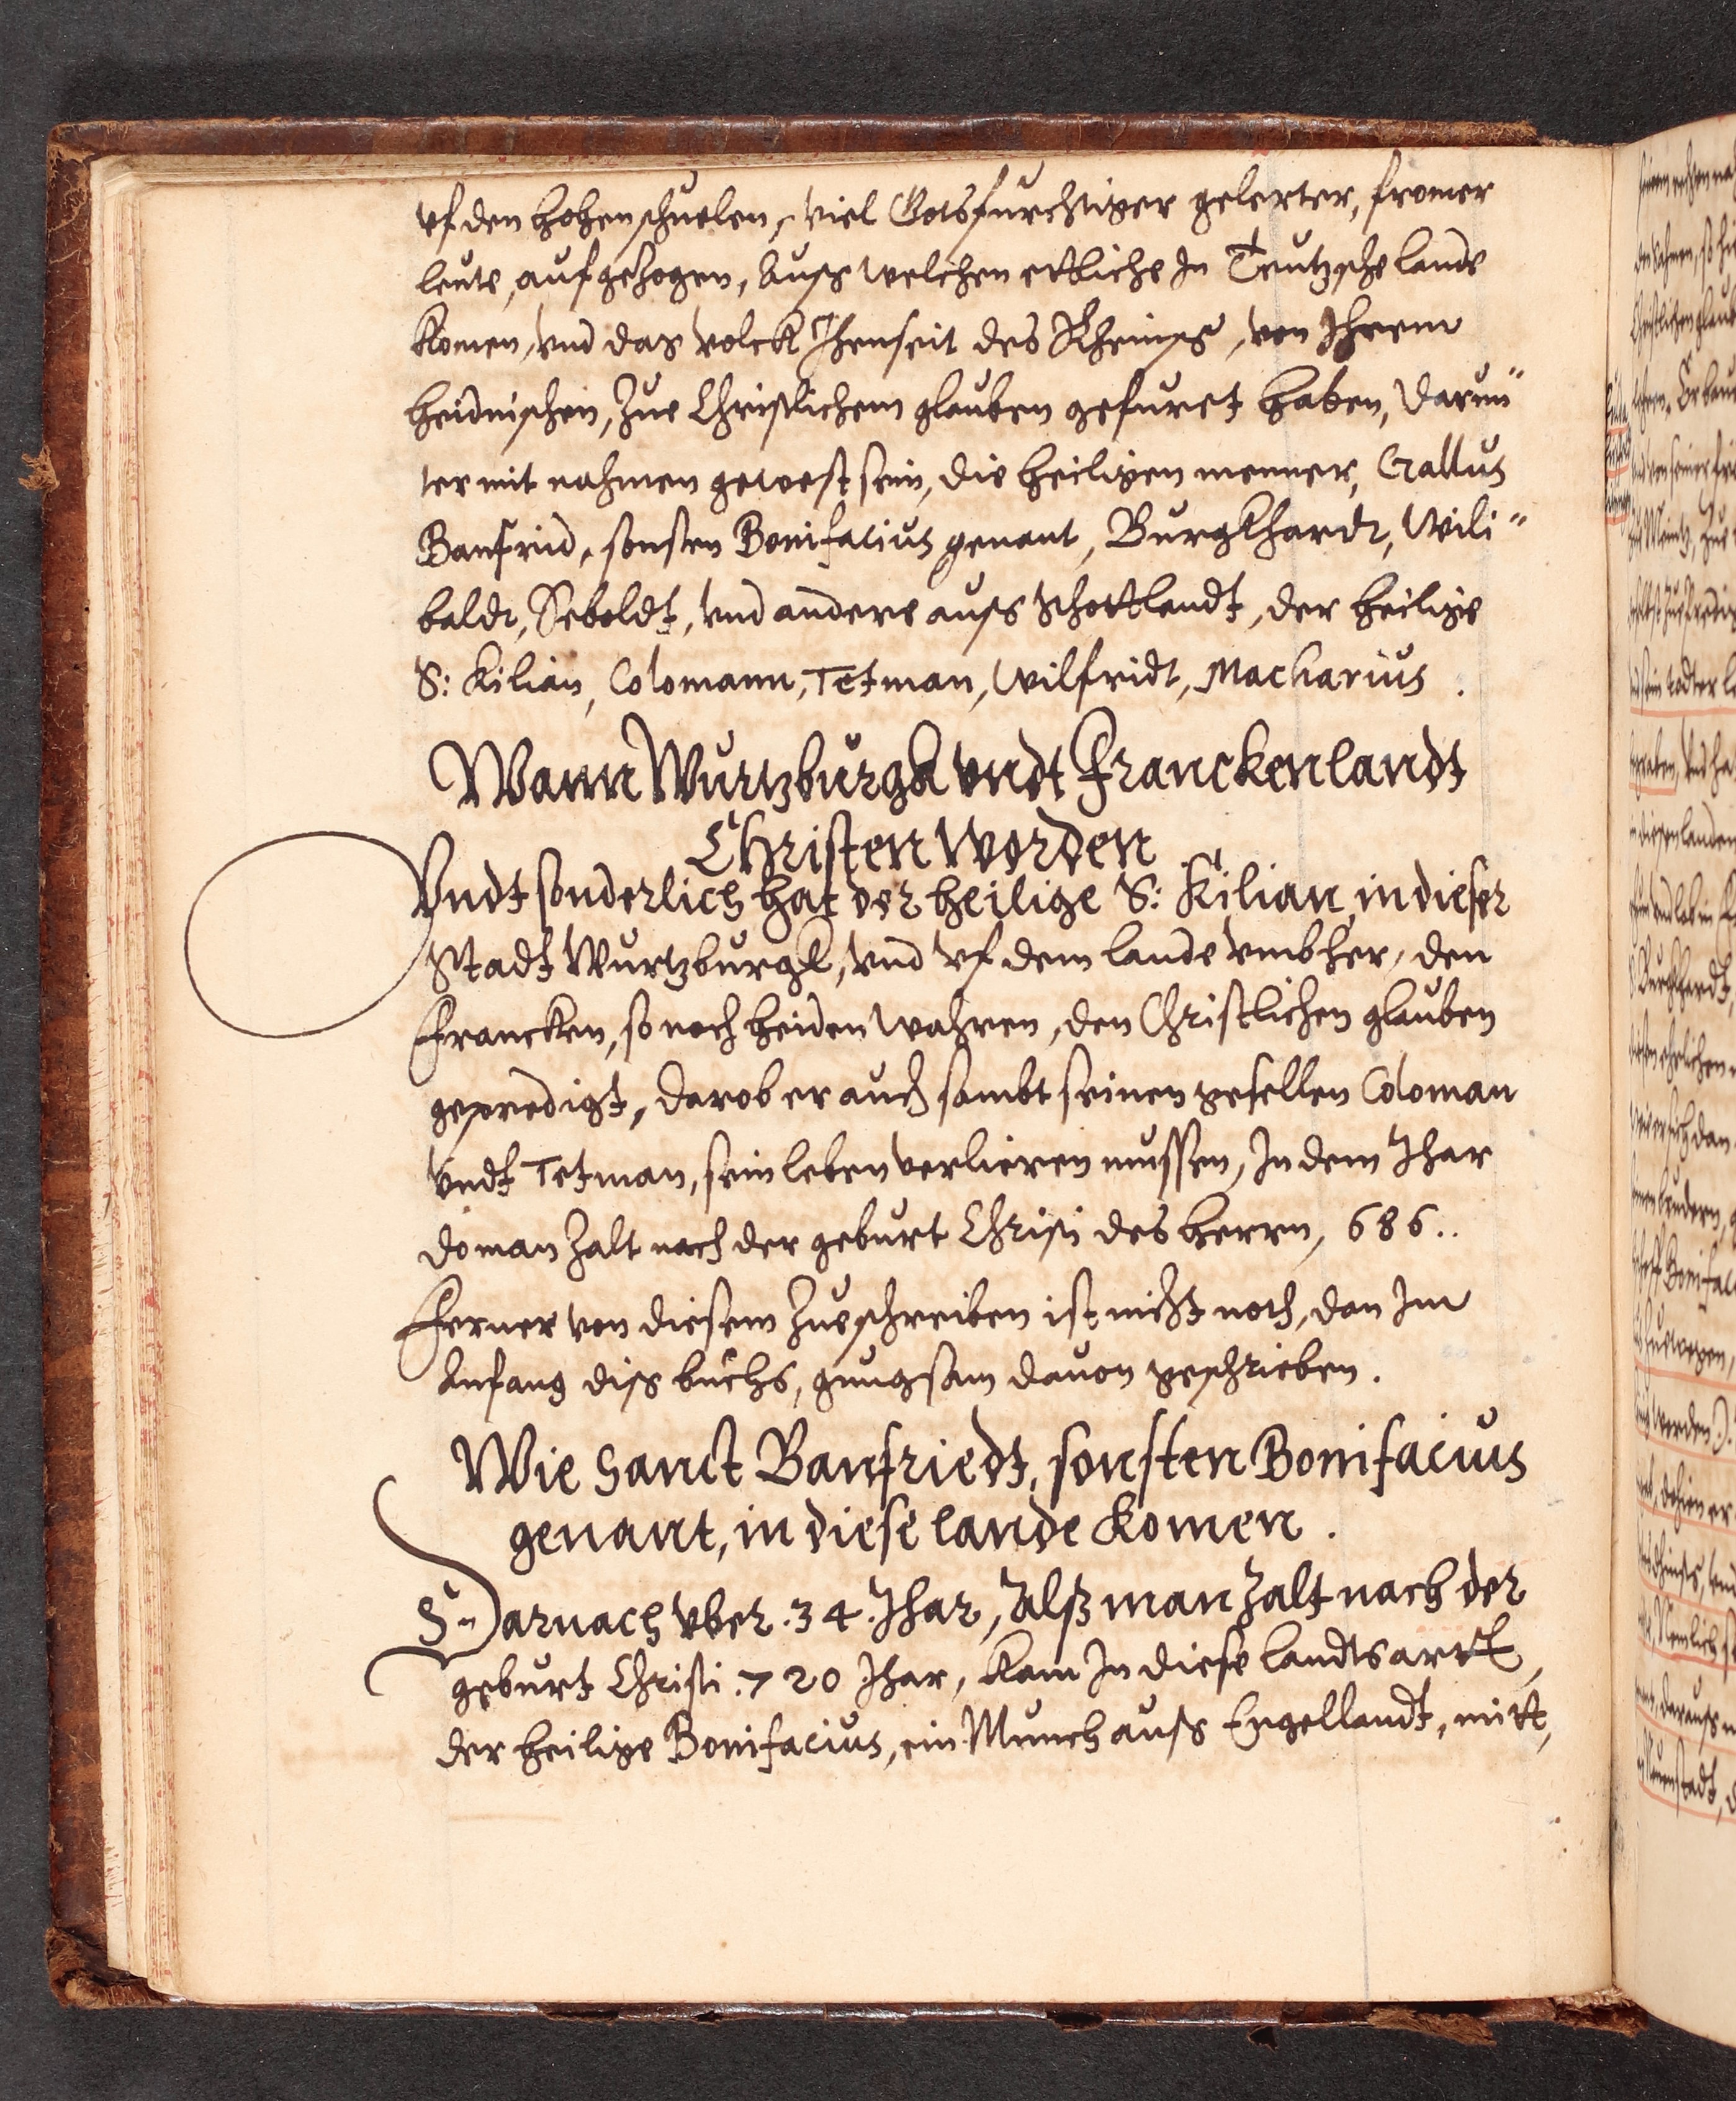 vf den hohenschuelen, viel Gotsfurchtiger gelerter, fromer
leute, aufgehogen, Auss welchen ettliche In Teutzsche lande
komen, vnd das volck Ihenseit des Rheinss, von Ihrem
heidnischen, zue Christlichem glauben gefuret haben, darun"
ter mit nahmen gewest sein, die heiligen menner, Gallus
Banfrid, sonsten Bonifacius genant, Burgkhardt, Wili"
baldt, Seboldt, vnd andere auss Schottlandt, der heilige
S: Kilian, Colomann, Tetman, Wilfridt, Macharius.
Wann Wurtzburgk vndt Franckenlandt
Christen worden
Vndt sonderlich hat der heilige S: Kilian in dieser
Stadt Wurtzburgk, vnd vf dem lande vmbher, den
Francken, so noch heiden wahren, den Christlichen glauben
gepredigt, darob er auch sambt seinen gesellen Coloman
vndt Tetman, sein leben verlieren mussen, In dem Ihar
do man zalt nach der geburt Christi des herrn, 686..
Ferner von diesem zueschreiben ist nicht noth, dan Im
Anfang diss buchs, gnugsam dauon geschrieben.
Wie Sanct Banfriedt, sonsten Bonifacius
genant, in diese lande komen.
Darnach vber .34. Ihar, Alss man zalt nach der
geburt Christi .720 Ihar, kam In diese landtsartt,
der heilige Bonifacius, ein Munch auss Engellandt, mitt,